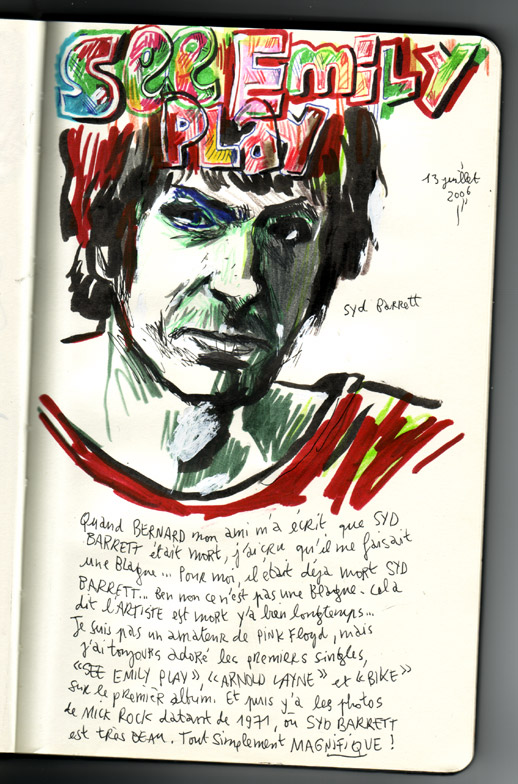 See Emily
PLAY
13 juillet
2006
Syd Barrett
Quand BERNARD mon ami m'a écrit que SYD
BARRETT était mort, j'ai cru qu'il me faisait
une Blague... Pour moi, il était déja mort SYD
BARRETT... Ben non ce n'est pas une Blague. Cela
dit l'ARTISTE est mort y'a bien longtemps...
Je suis pas un amateur de PINK Floyd, mais
j'ai toujours adoré les premiers singles,
«SEE EMILY PLAY», «ARNOLD LAYNE» et «BIKE»
sur le premier album. Et puis y'a les photos
de MICK ROCK datant de 1971, ou SYD BARRETT
est très BEAU. Tout simplement MAGNIFIQUE !